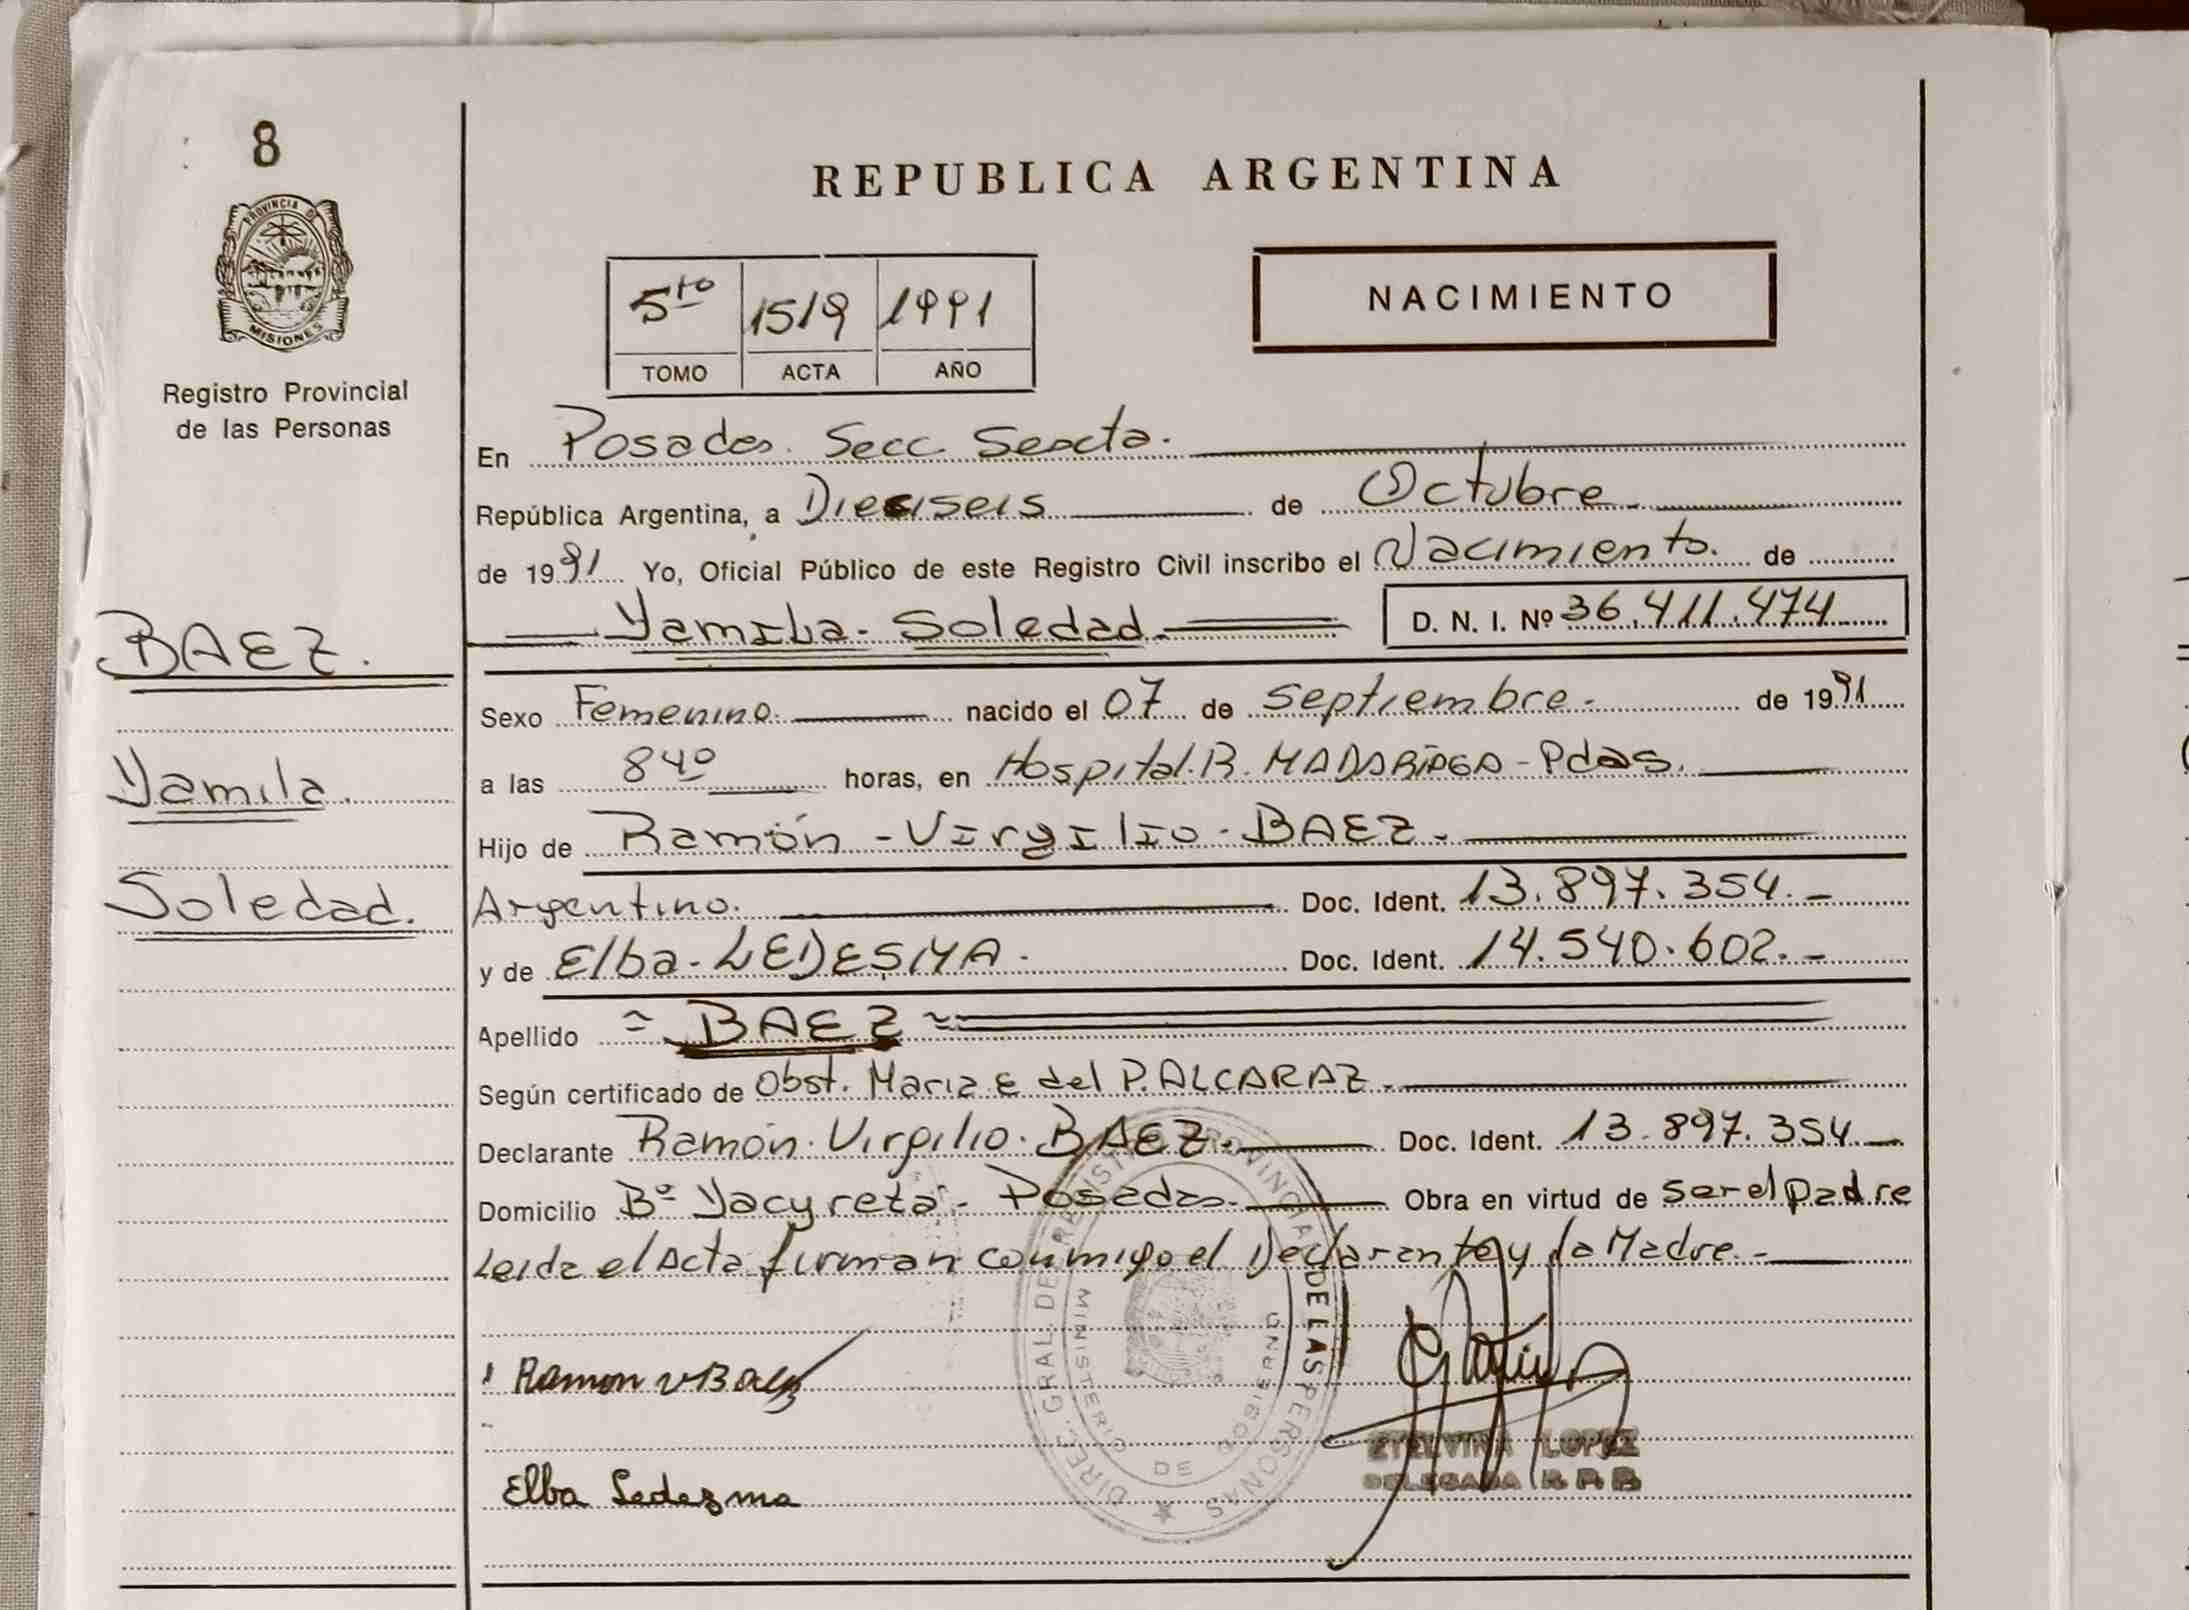 8
PROVINCIA DE
MISIONES
Registro Provincial
de las Personas
BAEZ.
Yamila.
Soledad.
REPUBLICA ARGENTINA
5to 1519 1991
TOMO ACTA AÑO
NACIMIENTO
En Posadas. Secc. Sexta.
República Argentina, a Dieciseis de Octubre
de 1991 Yo, Oficial Público de este Registro Civil inscribo el Nacimiento. de
Yamila - Soledad. D. N. I. Nº 36.411.474
Sexo Femenino. nacido el 07 de Septiembre. de 1991
a las 840 horas, en Hospital. R. MADARIAGA - Pdas.
Hijo de Ramón - Virgilio - BAEZ.
Argentino. Doc. Ident. 13.897.354.-
y de Elba - LEDESMA. Doc. Ident. 14.540.602.-
Apellido = BAEZ =
Según certificado de Obst. Maria E del P. ALCARAZ.
Declarante Ramón. Virgilio. BAEZ. Doc. Ident. 13.897.354
Domicilio Bº Yacyreta - Posadas. Obra en virtud de ser el padre
Leida el Acta firman conmigo el Declarante y la Madre.-
Ramon V Baez
Elba Ledezma
DIREC. GRAL. DE REGISTRO PROVINCIAL DE LAS PERSONAS
MINISTERIO DE GOBIERNO
ETELVINA LOPEZ
DELEGADA